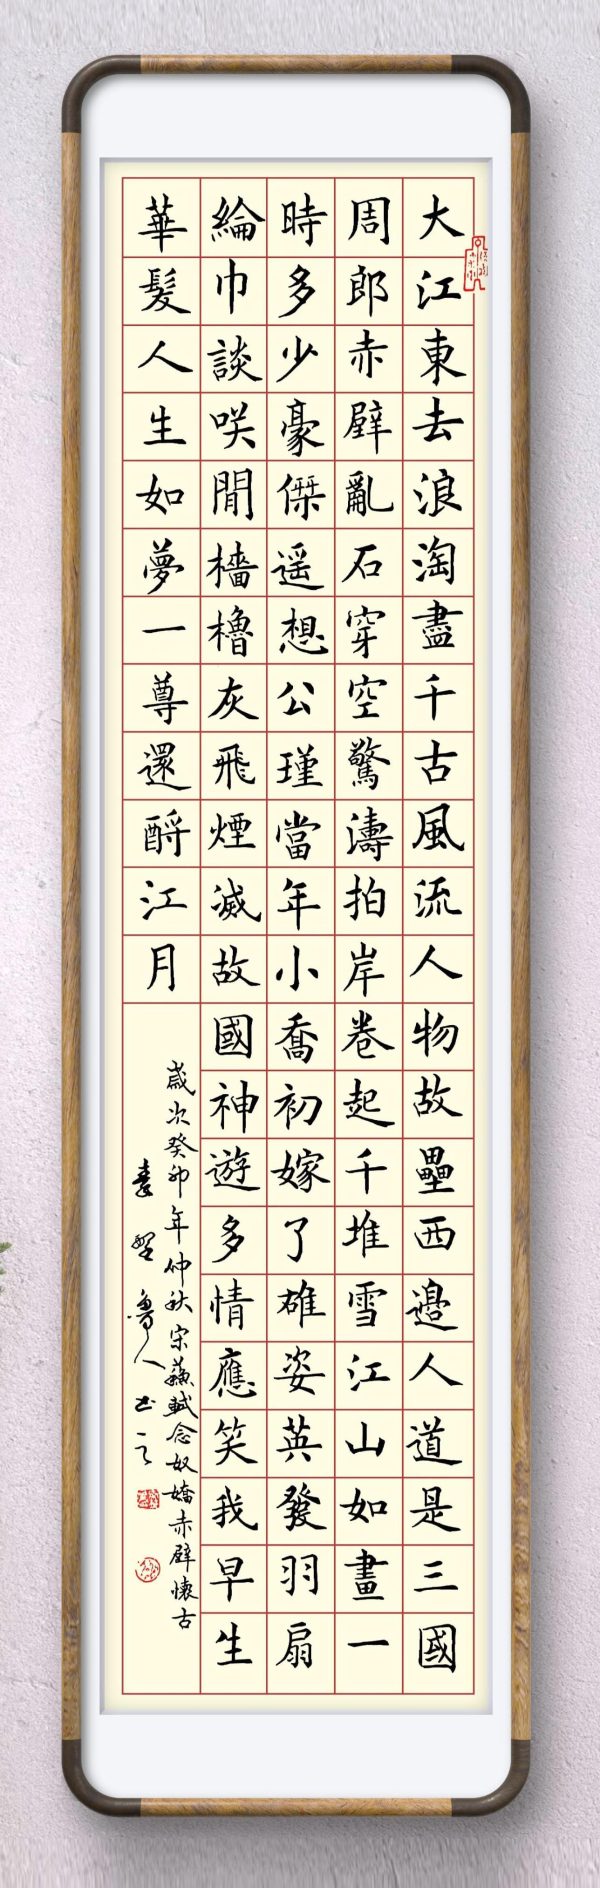 大江東去浪淘盡千古風流人物故壘西邊人道是三國
周郎赤壁亂石穿空驚濤拍岸卷起千堆雪江山如畫一
時多少豪傑遥想公瑾當年小喬初嫁了雄姿英發羽扇
綸巾談咲閒檣櫓灰飛煙滅故國神遊多情應笑我早生
華髮人生如夢一尊還酹江月
歲次癸卯年仲秋宋蘇軾念奴嬌赤壁懷古
魯人书